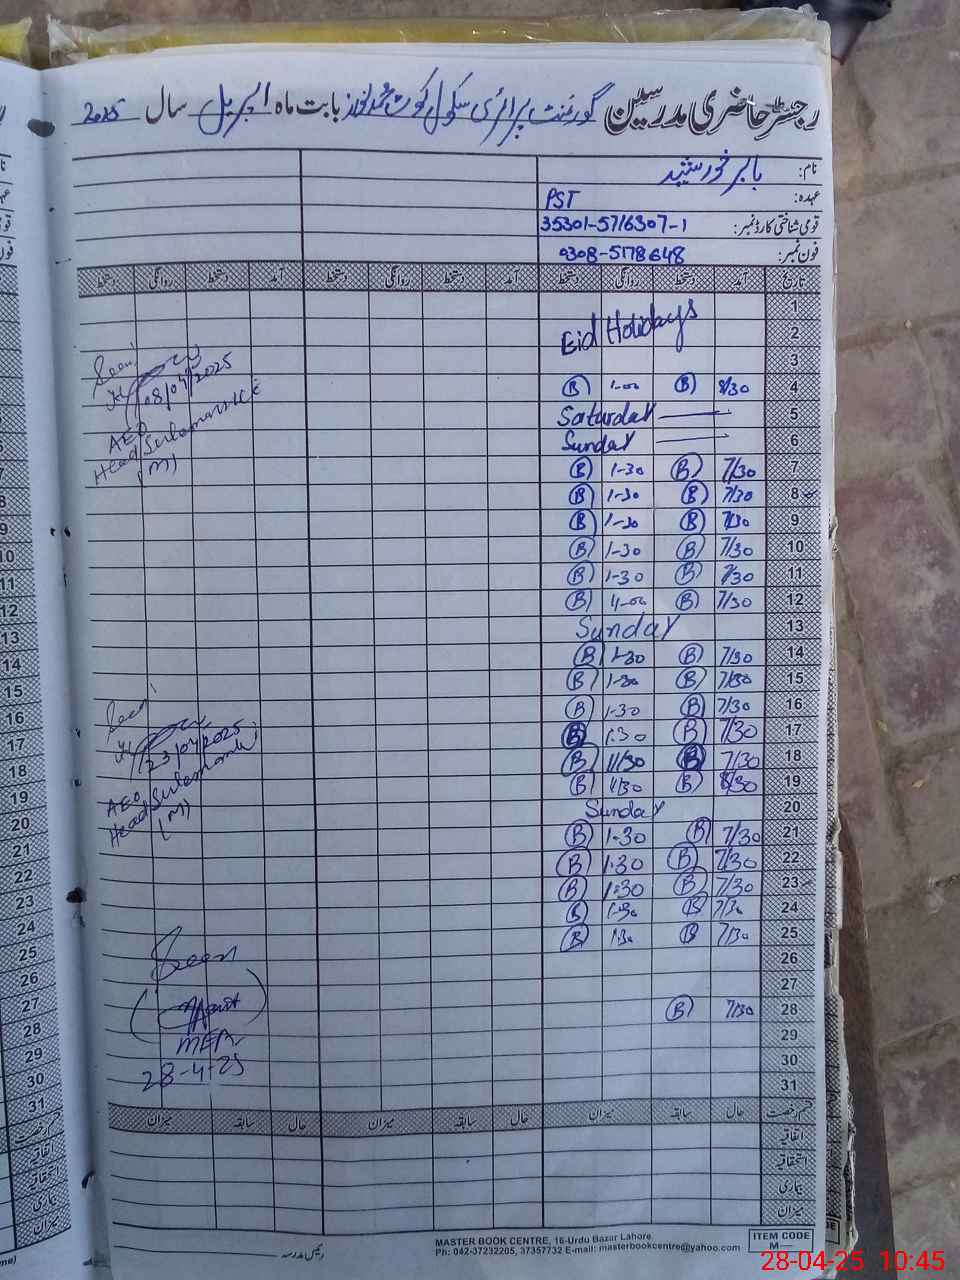 رجسٹر حاضری مدرسین گورنمنٹ پرائمری سکول کوٹ محمد نواز بابت ماہ اپریل سال 2025
نام: بابر خورشید
عہدہ: PST
قومی شناختی کارڈ نمبر: 35301-5716307-1
فون نمبر: 0308-5178648
تاریخ آمد دستخط روانگی دستخط آمد دستخط روانگی دستخط آمد دستخط روانگی دستخط
1
2 Eid Holidays
3
4 8/30 B 1-00 B
5 Saturday
6 Sunday
7 7/30 B 1-30 B
8 7/30 B 1-30 B
9 7/30 B 1-30 B
10 7/30 B 1-30 B
11 7/30 B 1-30 B
12 7/30 B 4-00 B
13 Sunday
14 7/30 B 1-30 B
15 7/30 B 1-30 B
16 7/30 B 1-30 B
17 7/30 B 1:30 B
18 7/30 B 11/30 B
19 8/30 B 1/30 B
20 Sunday
21 7/30 B 1-30 B
22 7/30 B 1:30 B
23 7/30 B 1:30 B
24 7/30 B 1-30 B
25 7/30 B 1:30 B
26
27
28 7/30 B
29
30
31
Seen
08/04/2025
AEO
Head Sulemanki
(M)
Seen
23/04/2025
AEO
Head Sulemanki
(M)
Seen
MEA
28-4-25
قسم رخصت حال سابقہ میزان حال سابقہ میزان حال سابقہ میزان
اتفاقیہ
استحقاقیہ
بیماری
میزان
رئیس مدرسہ
MASTER BOOK CENTRE, 16-Urdu Bazar Lahore.
Ph: 042-37232205, 37357732 E-mail: masterbookcentre@yahoo.com
ITEM CODE
M—
28-04-25 10:45